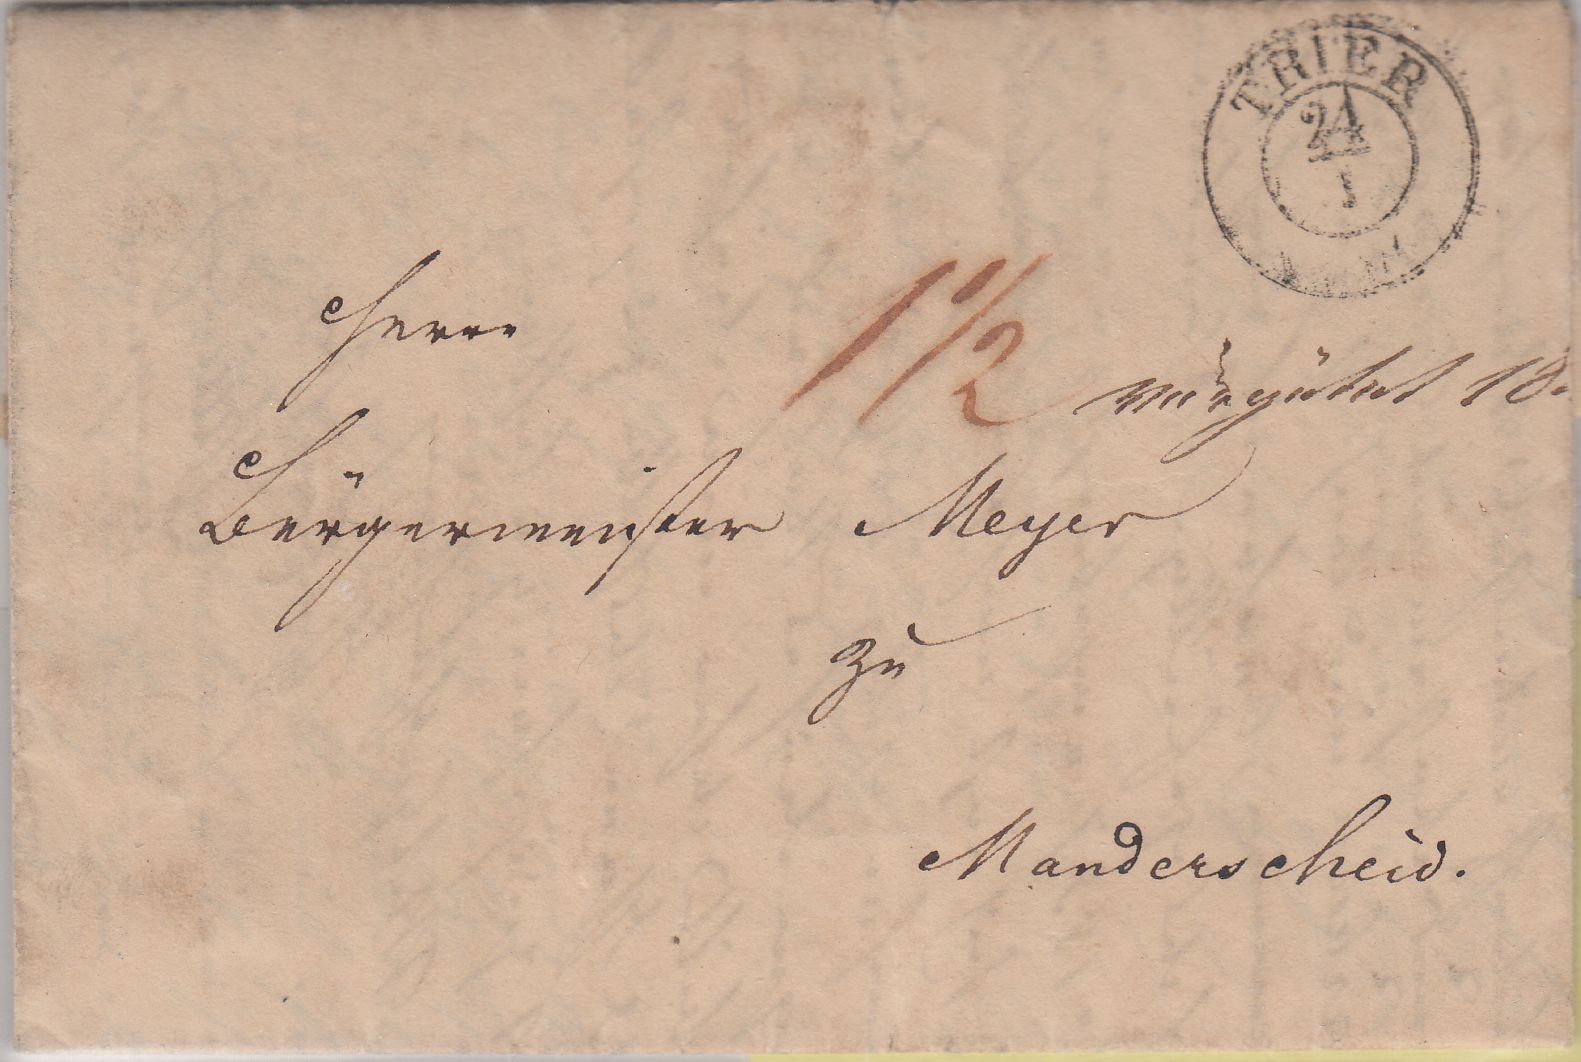 TRIER
24
1
Herrn
1 1/2
vergütet 18
Bürgermeister Meyer
zu
Manderscheid.